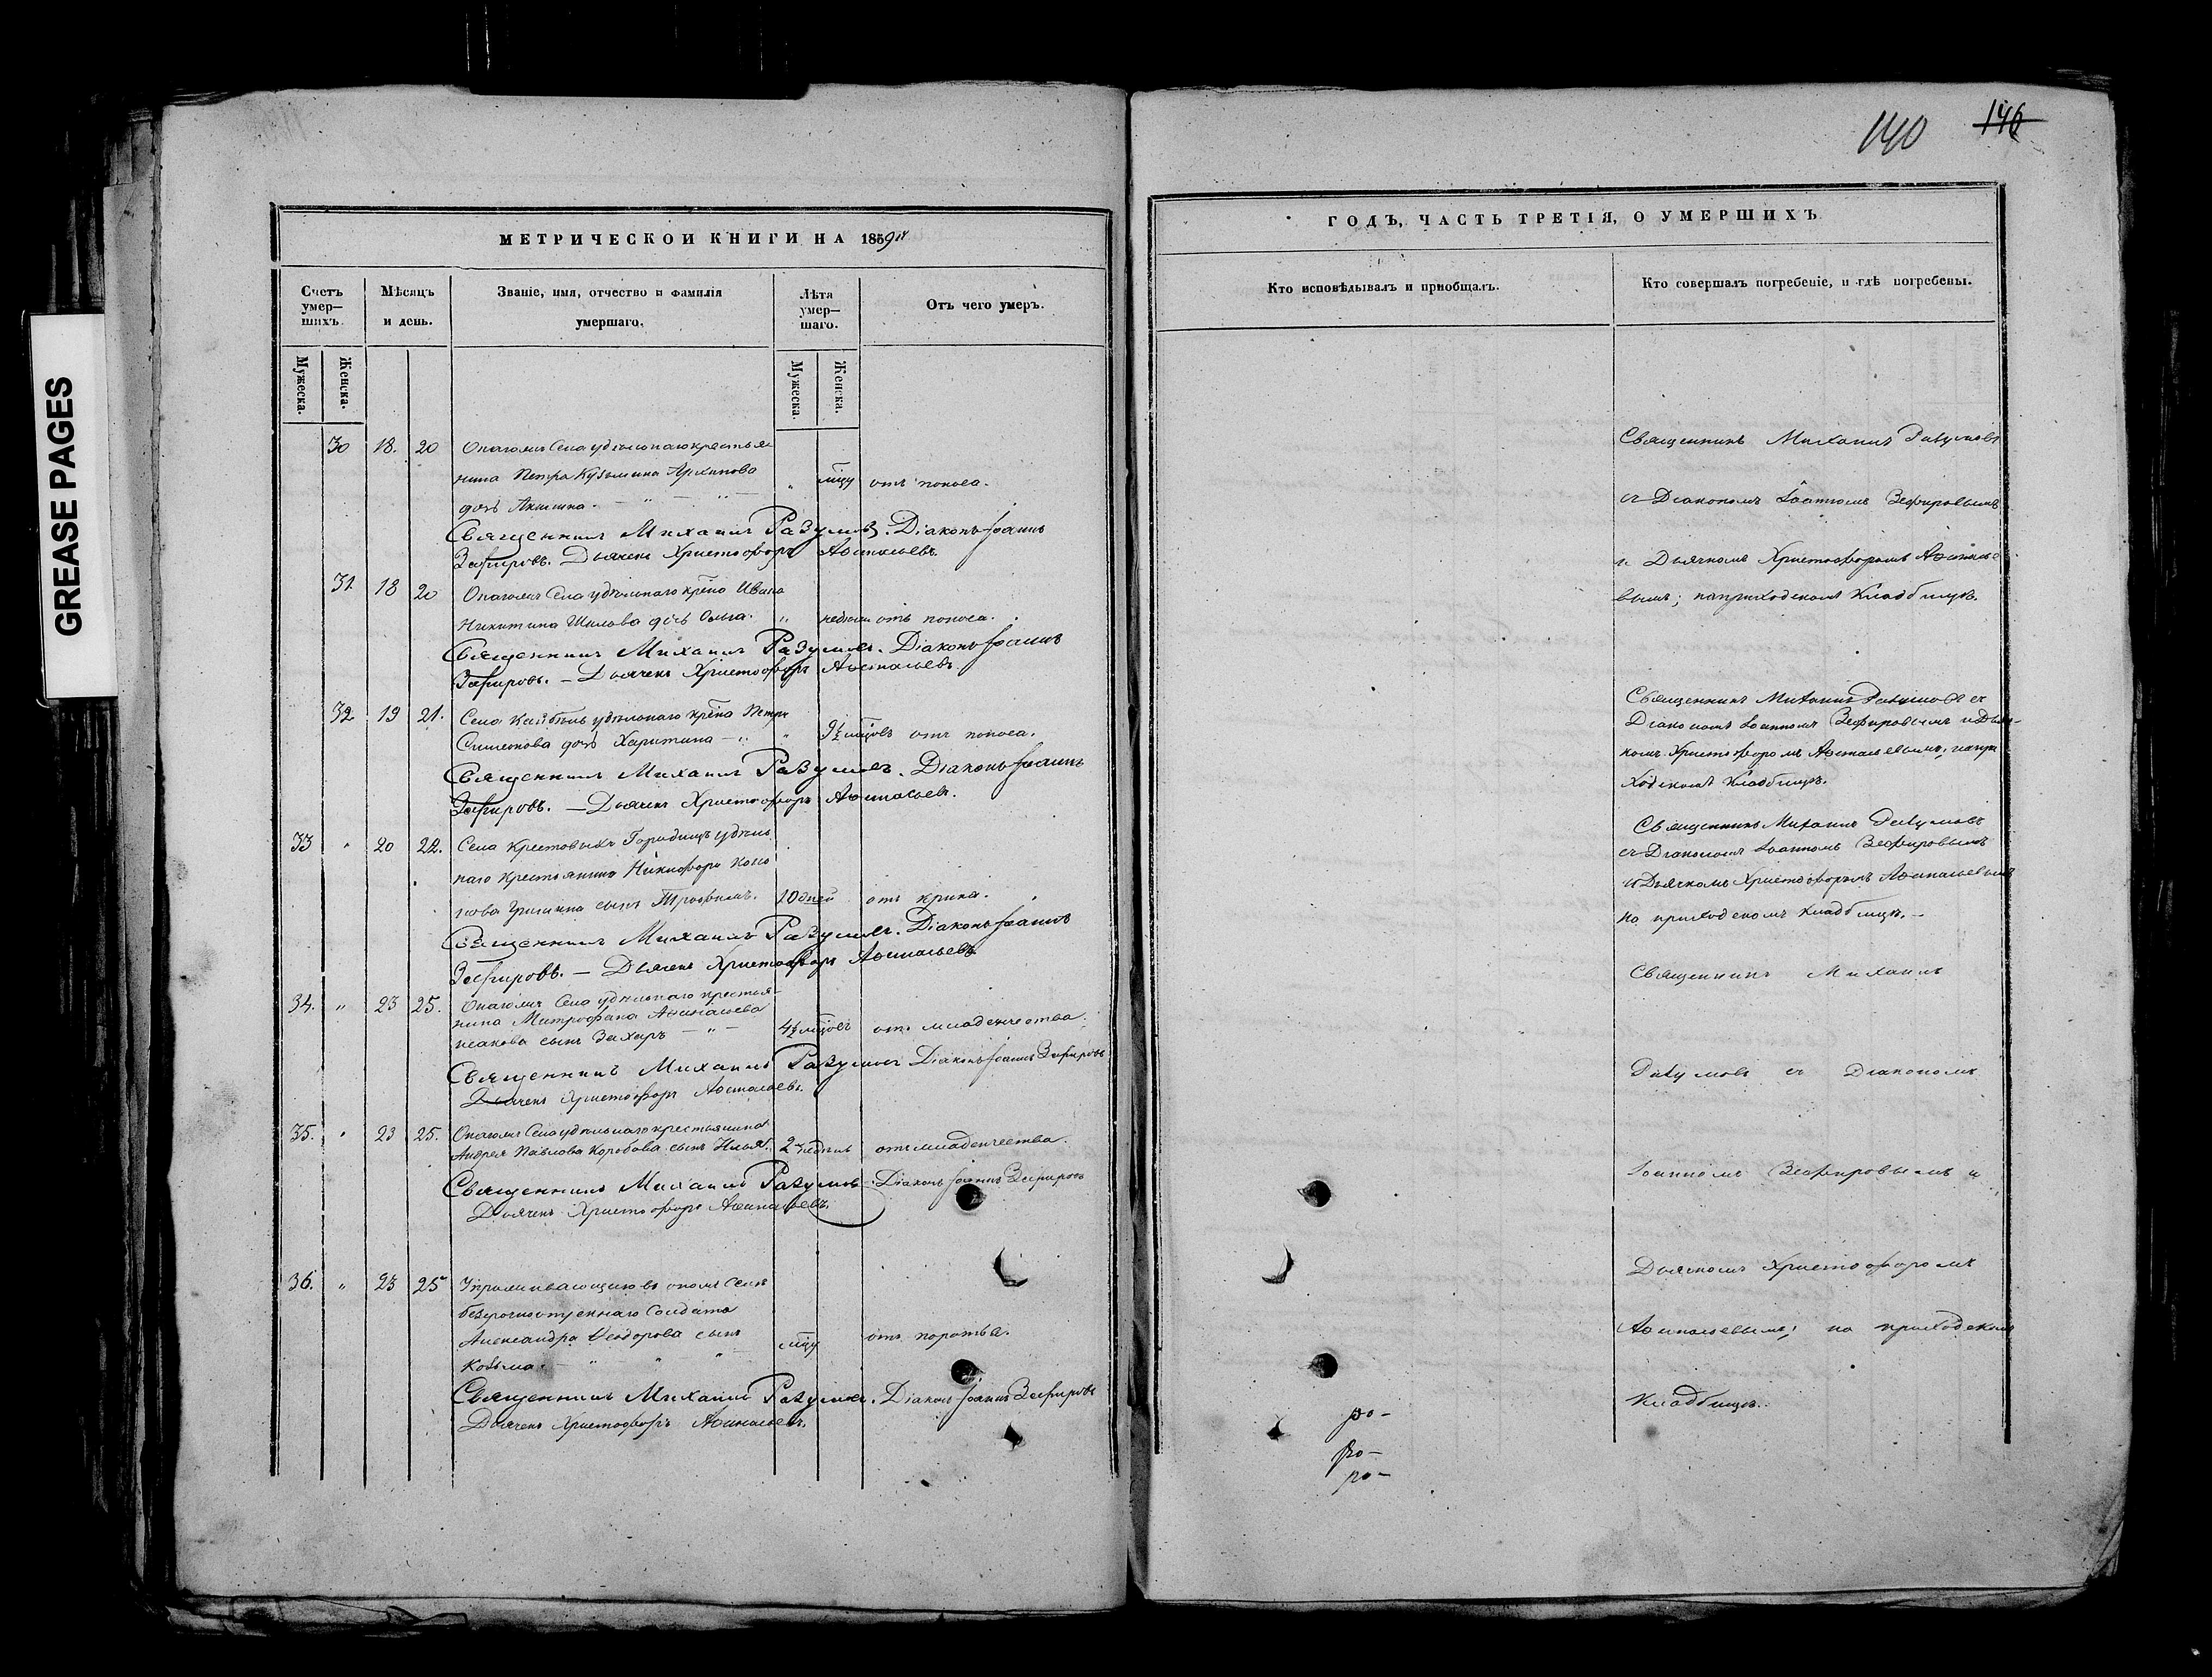 GREASE PAGES
МЕТРИЧЕСКОЙ КНИГИ НА 1859й
Счетъ умер—шихъ.
Мѣсяцъ и день.
Званіе, имя, отчество и фамилія умершаго.
Лѣта умер—шаго.
Отъ чего умеръ.
Мужеска.
Женска.
Мужеска.
Женска.
30 18. 20 Онагожъ Села удѣльнаго крестья
нина Петра Кузьмина Архипова
дочь Акилина. „ мцу отъ поноса.
Священникъ Михаилъ Разумовъ. Діаконъ Іоаннъ
Зефировъ. Дьячекъ Христофоръ Аѳанасьевъ.
31 18 20 Онагожъ Села удѣльнаго крѣно Ивана
Никитина Шилова дочь Ольга. „ недѣли отъ поноса.
Священникъ Михаилъ Разумовъ. Діаконъ Іоаннъ
Зефировъ. — Дьячекъ Христофоръ Аѳанасьевъ.
32 19 21. Села удѣльнаго Петра
Симеонова дочь Харитина — „ „ 9½ мцовъ отъ поноса.
Священникъ Михаилъ Разумовъ. Діаконъ Іоаннъ
Зефировъ. — Дьячекъ Христофоръ Аѳанасьевъ.
33 „ 20 22. Села Крестовыхъ Городищъ удѣль
наго крестьянина Никифора Коно
нова сынъ Трофимъ. 10 дней отъ крика.
Священникъ Михаилъ Разумовъ. Діаконъ Іоаннъ
Зефировъ. — Дьячекъ Христофоръ Аѳанасьевъ.
34. „ 23 25. Онагожъ Села удѣльнаго крестья-
нина Митрофана Аѳанасьева
Исакова сынъ Захаръ — „ — 4½ мцовъ отъ младенчества.
Священникъ Михаилъ Разумовъ Діаконъ Іоаннъ Зефировъ
Дьячекъ Христофоръ Аѳанасьевъ.
35. „ 23 25. Онагожъ Села удѣльнаго крестьянина
Андрея Павлова Коробова сынъ Илья. 2 недѣль отъ младенчества.
Священникъ Михаилъ Разумовъ Діаконъ Іоаннъ Зефировъ
Дьячекъ Христофоръ Аѳанасьевъ.
36. „ 23 25 въ ономъ Селѣ
Солдата
Александра Ѳеодорова сынъ
Козьма. — „ „ „ мцу
Священникъ Михаилъ Разумовъ. Діаконъ Іоаннъ Зефировъ
Дьячекъ Христофоръ Аѳанасьевъ.
140 146
ГОДЪ, ЧАСТЬ ТРЕТІЯ, О УМЕРШИХЪ
Кто исповѣдывалъ и приобщалъ.
Кто совершалъ погребеніе, и гдѣ погребены.
Священникъ Михаилъ Разумовъ
съ Діакономъ Іоанномъ Зефировымъ
и Дьячкомъ Христофоромъ Аѳанасье
вымъ; на приходскомъ Кладбищѣ.
Священникъ Михаилъ Разумовъ съ
Діакономъ Іоанномъ Зефировымъ и Дьяч-
комъ Христофоромъ Аѳанасьевымъ, на при
ходскомъ Кладбищѣ.
Священникъ Михаилъ Разумовъ
съ Діакономъ Іоанномъ Зефировымъ
и Дьячкомъ Христофоромъ Аѳанасьевымъ
на приходскомъ Кладбищѣ. —
Священникъ Михаилъ
Разумовъ съ Діакономъ
Іоанномъ Зефировымъ и
Дьячкомъ Христофоромъ
Аѳанасьевымъ; на приходскомъ
Кладбищѣ.
ро-
ро-
ро-